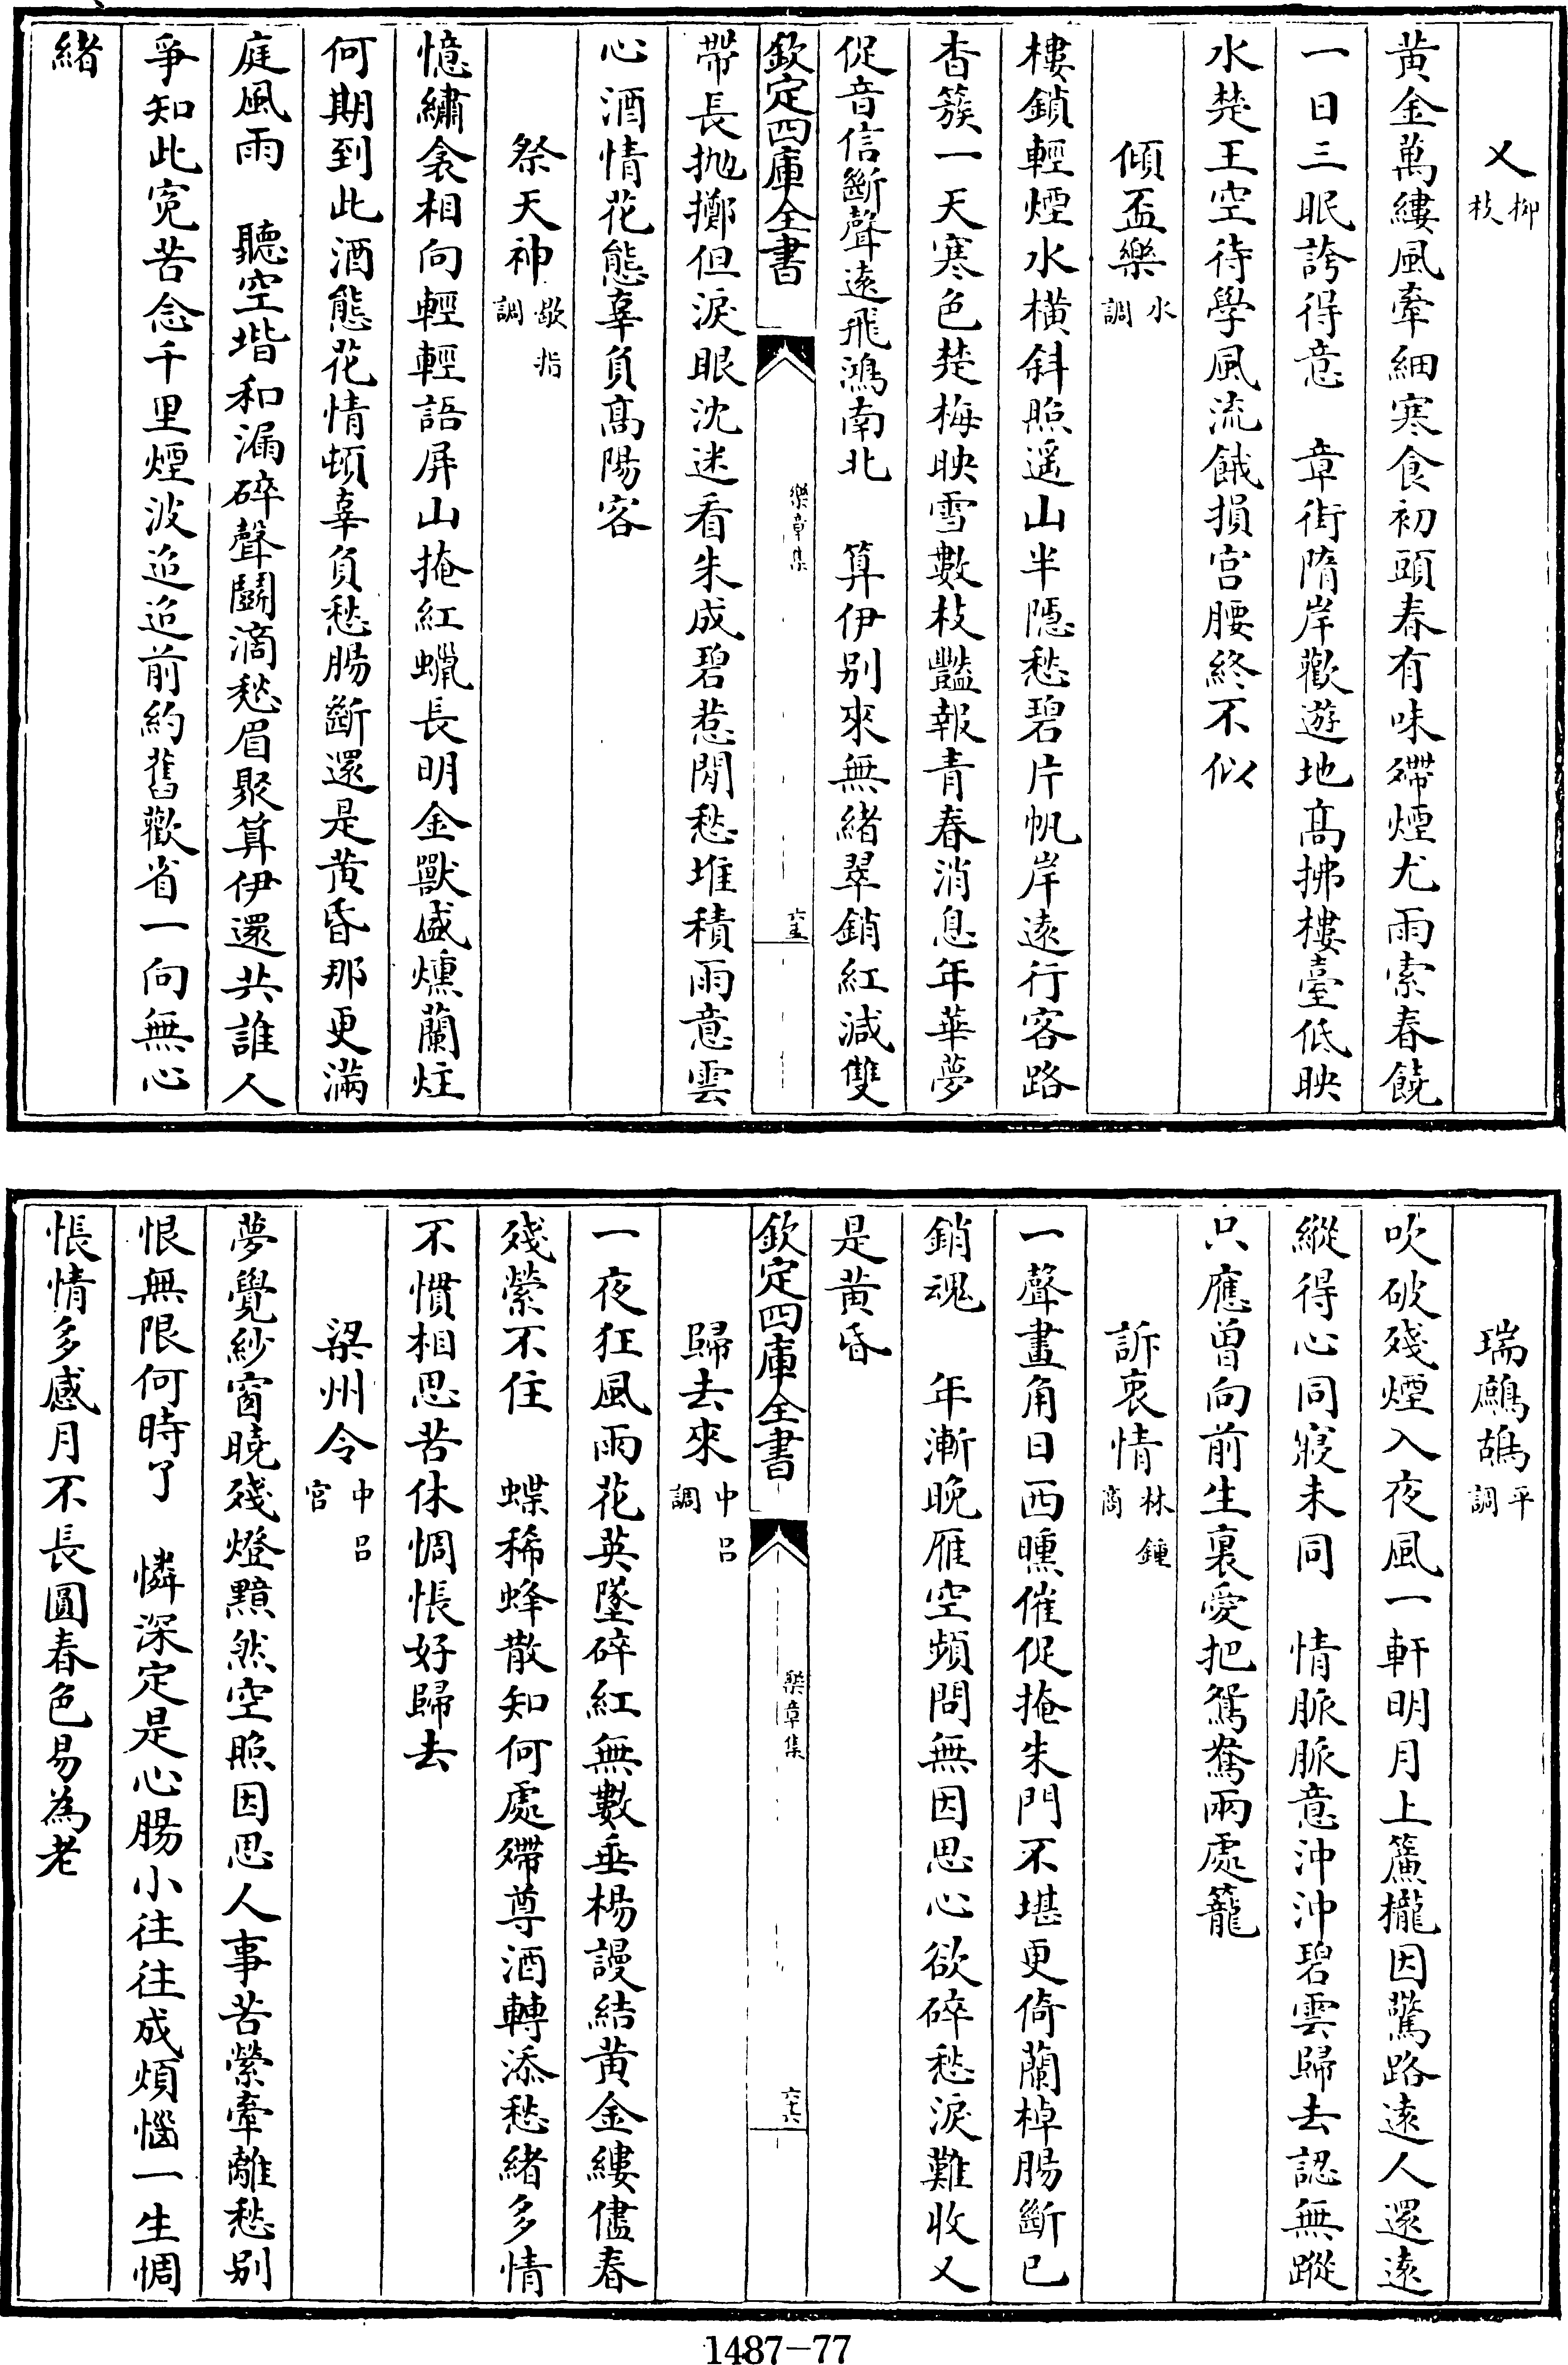 又柳枝
黄金萬縷風牽細寒食初頭春有味殢煙尤雨索春饒
一日三眠誇得意　章街隋岸歡遊地髙拂樓臺低映
水楚王空待學風流餓損宫腰終不似
傾盃樂水調
樓鎖輕煙水橫斜照遥山半隱愁碧片帆岸逺行客路
杳簇一天寒色楚梅映雪數枝豔報青春消息年華夢
促音信斷聲逺飛鴻南北　算伊别來無緒翠銷紅減雙
欽定四庫全書
樂章集
六十五
帶長抛擲但淚眼沈迷看朱成碧惹閒愁堆積雨意雲
心酒情花態辜負髙陽客
祭天神歇指調
憶繡衾相向輕輕語屏山掩紅蠟長明金獸盛燻蘭炷
何期到此酒態花情頓辜負愁腸斷還是黄昏那更滿
庭風雨　聽空堦和漏碎聲鬬滴愁眉聚算伊還共誰人
爭知此寃苦念千里煙波迢迢前約舊歡省一向無心
緒
瑞鷓鴣平調
吹破殘煙入夜風一軒明月上簾櫳因驚路逺人還逺
縱得心同寢未同　情脈脈意沖沖碧雲歸去認無蹤
只應曾向前生裏愛把鴛鴦兩處籠
訴衷情林鍾商
一聲畫角日西曛催促掩朱門不堪更倚蘭棹腸斷已
銷魂　年漸晚雁空頻問無因思心欲碎愁淚難收又
是黄昏
欽定四庫全書
樂章集
六十六
歸去來中吕調
一夜狂風雨花英墜碎紅無數垂楊謾結黄金縷儘春
殘縈不住　蝶稀蜂散知何處殢尊酒轉添愁緒多情
不慣相思苦休惆悵好歸去
梁州令中吕宫
夢覺紗窗曉殘燈黯然空照因思人事苦縈牽離愁别
恨無限何時了　憐深定是心腸小往往成煩惱一生惆
悵情多感月不長圓春色易為老
1487-77